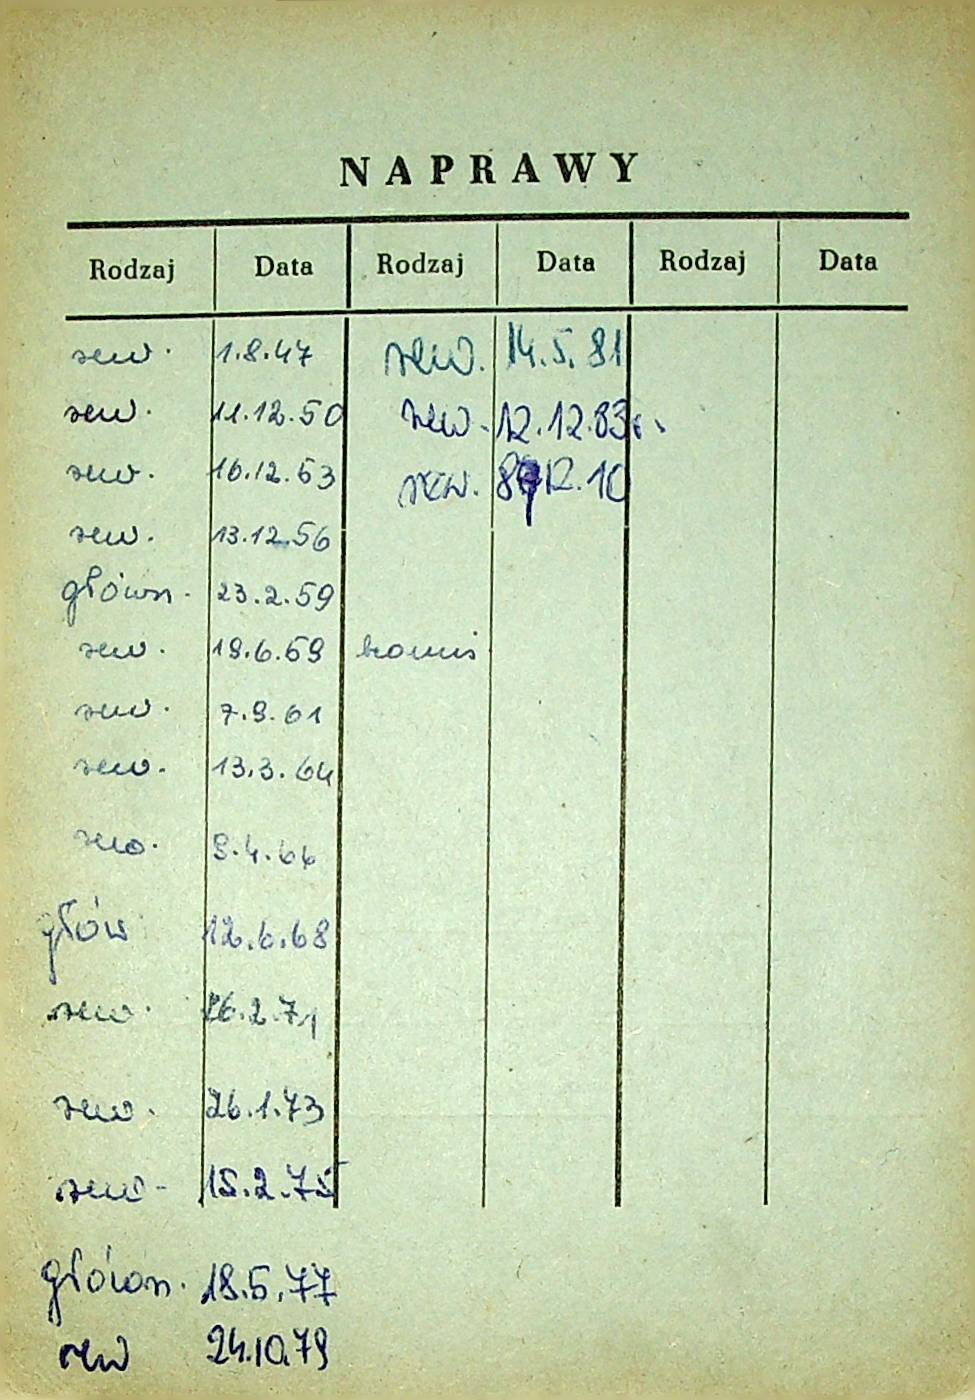 NAPRAWY
Rodzaj Data Rodzaj Data Rodzaj Data
rew. 1.8.47 rew. 14.5.81
rew. 11.12.50 rew. 12.12.83r.
rew. 16.12.53 rew. 12.10
rew. 13.12.56
główn. 23.2.59
rew. 19.6.69
rew. 7.9.61
rew. 13.3.64
rew. 9.4.66
głów 12.6.68
rew. 26.2.71
rew. 26.1.73
rew. 15.2.75
główn. 18.5.77
rew 24.10.79